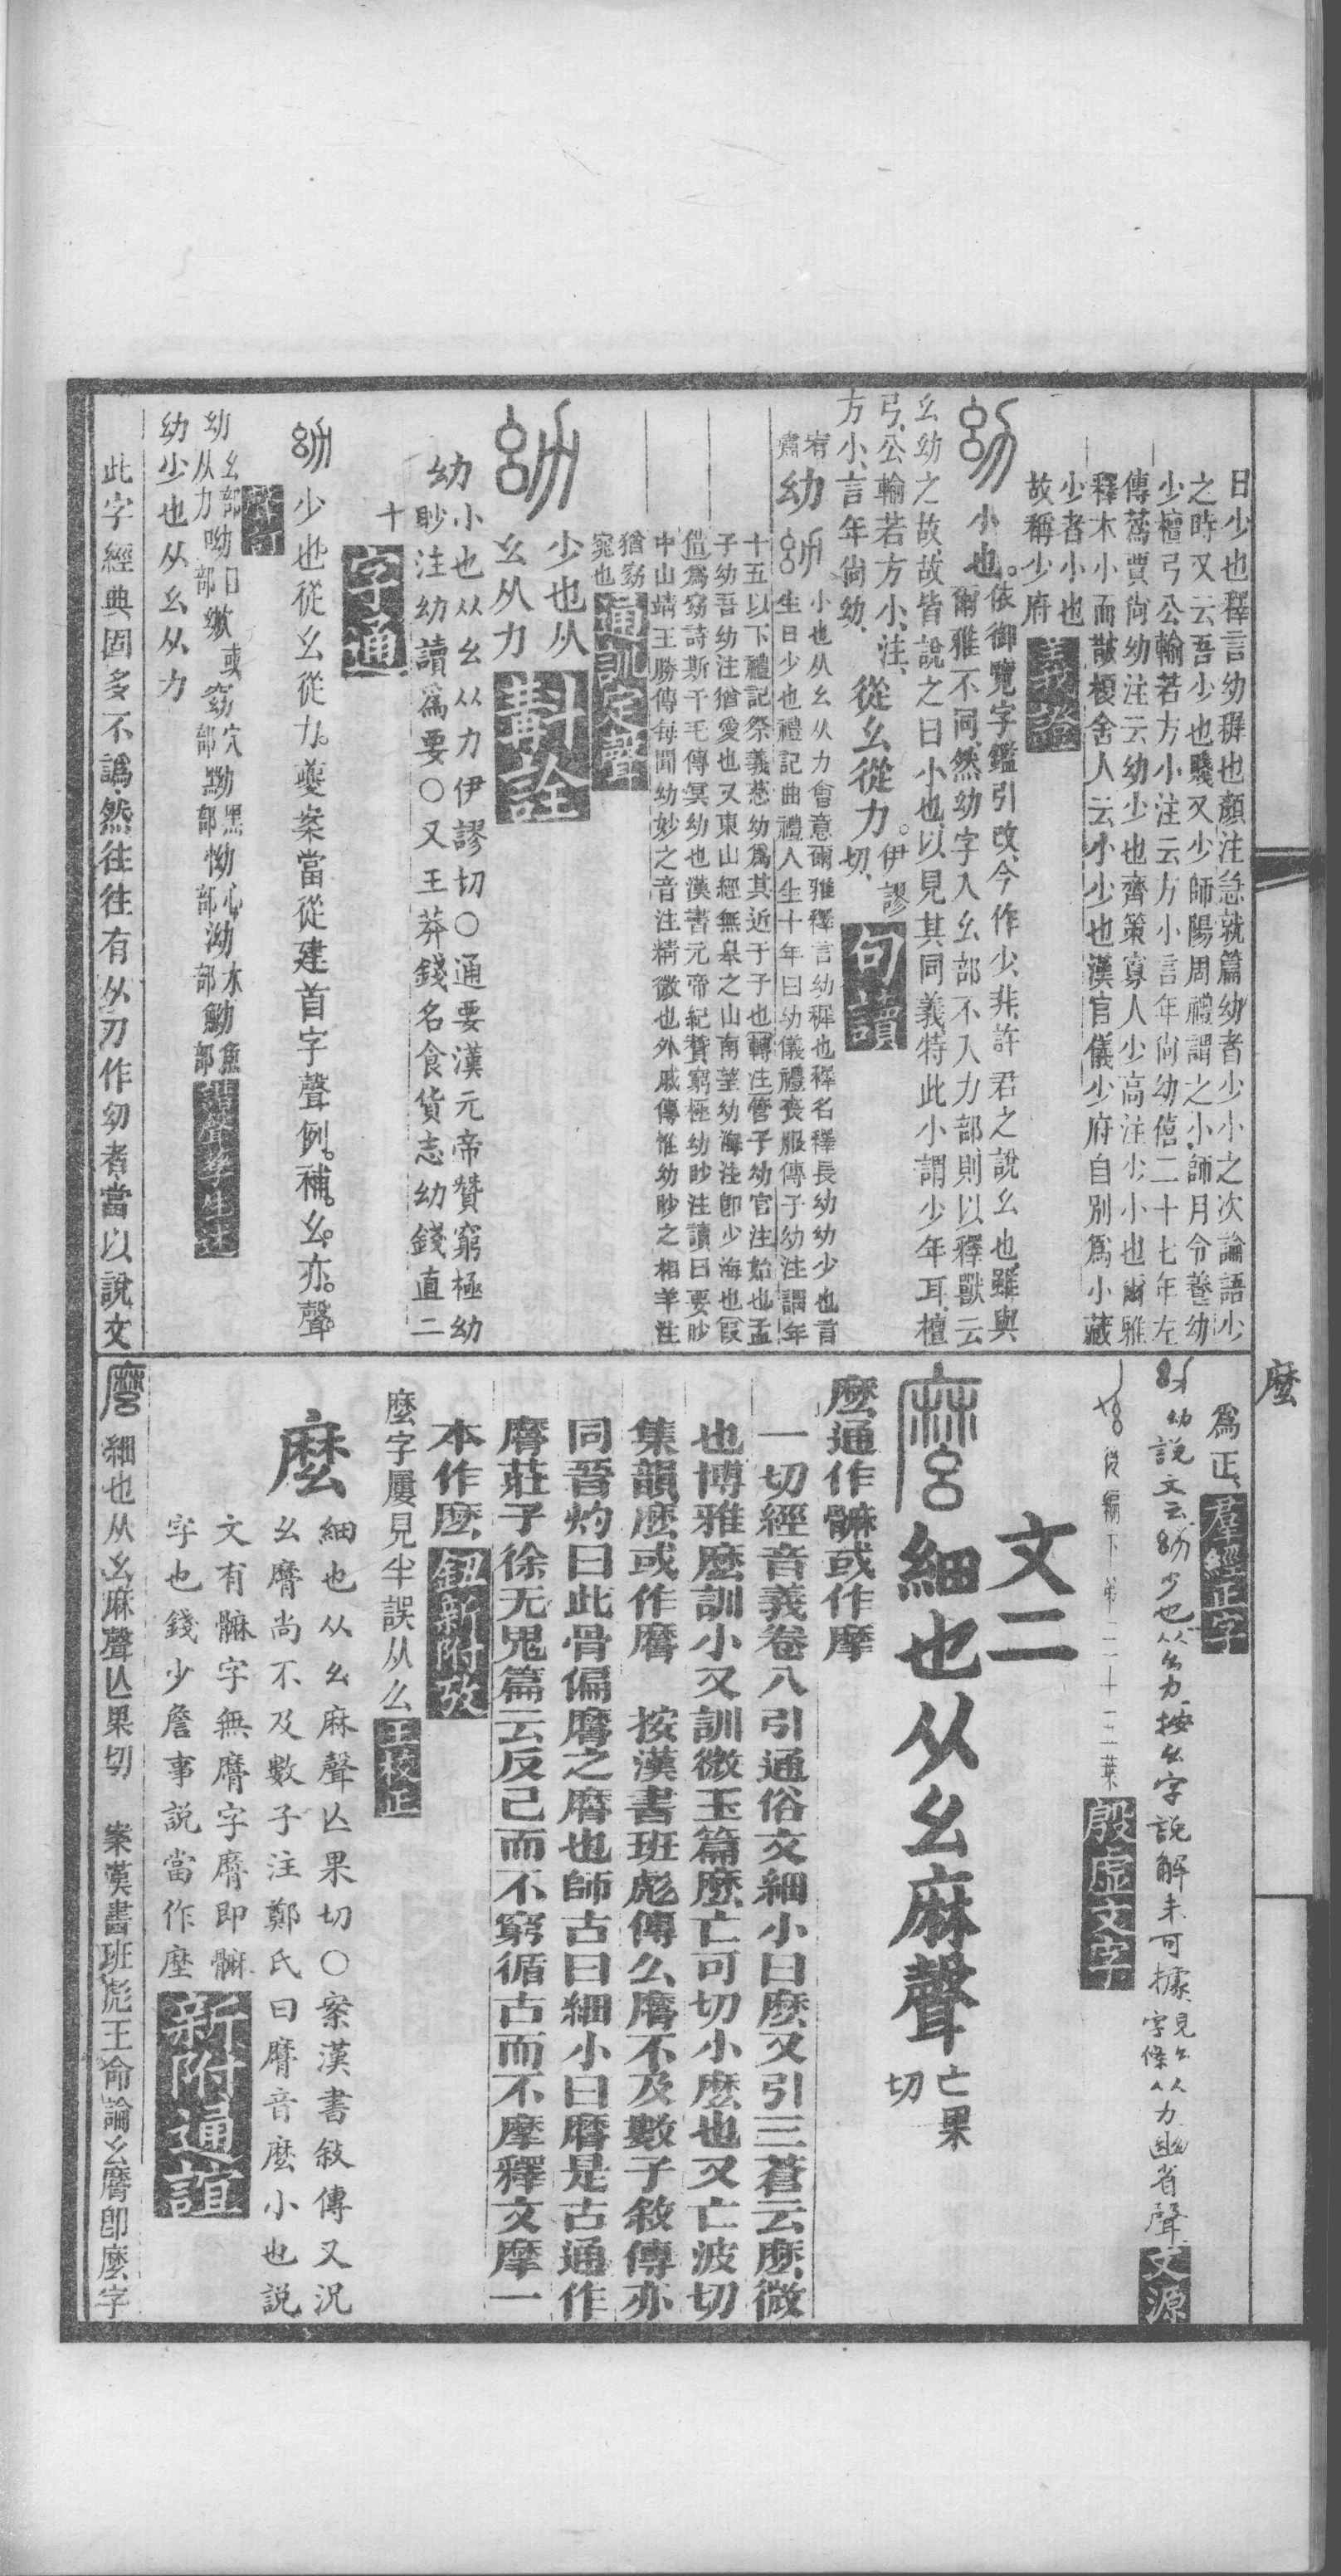 曰少也釋言幼稺也顏注急就篇幼者少小之次論語少
之時又云吾少也賤又少師陽周禮謂之小師月令養幼
少檀弓公輸若方小注云方小言年尙幼僖二十七年左
傳蔿賈尙幼注云幼少也齊策寡人少高注少小也爾雅
釋木小而皵榎舍人云小少也漢官儀少府自別爲小藏
少者小也
故稱少府 義證
小也。依御覽字鑑引改今作少非許君之說幺也雖與
爾雅不同然幼字入幺部不入力部則以釋獸云
幺幼之故故皆說之曰小也以見其同義特此小謂少年耳檀
弓公輸若方小注
方小言年尙幼 從幺從力。伊謬
切 句讀
宥
肅 幼 小也从幺从力會意爾雅釋言幼稺也釋名釋長幼幼少也言
生日少也禮記曲禮人生十年曰幼儀禮喪服傳子幼注謂年
十五以下禮記祭義慈幼爲其近于子也轉注管子幼官注始也孟
子幼吾幼注猶愛也又東山經無皋之山南望幼海注卽少海也叚
借爲窈詩斯干毛傳冥幼也漢書元帝紀贊窮極幼眇注讀曰要眇
中山靖王勝傳每聞幼妙之音注精微也外戚傳惟幼眇之相羊注
猶窈
窕也 通訓定聲
少也从
幺从力 斠詮
幼 小也从幺从力伊謬切〇通要漢元帝贊窮極幼
眇注幼讀爲要〇又王莽錢名食貨志幼錢直二
十 字通
少也從幺從力。夌案當從建首字聲例。補。幺。亦。聲
幼幺部
从力呦口部䋤或窈穴部黝黑部怮心部泑水部魩魚部
幼少也从幺从力
此字經典固多不譌然往往有从刀作幼者當以說文
爲正 羣經正字
幼說文云少也从幺力按幺字說解未可據見幺字條从力幽省聲 文源
後編下第二十三葉 殷虛文字
文二
細也从幺麻聲亡果
切
麼通作䯢或作摩
一切經音義卷八引通俗文細小曰麼又引三蒼云麼微
也博雅麼訓小又訓微玉篇麼亡可切小麼也又亡波切
集韻麼或作麿 按漢書班彪傳幺麿不及數子敘傳亦
同晉灼曰此骨偏麿之麿也師古曰細小曰麿是古通作
麿莊子徐无鬼篇云反己而不窮循古而不摩釋文摩一
本作麼 鈕新附攷
麼字屢見半誤从么 王校正
麼 細也从幺麻聲亡果切〇案漢書敍傳又況
幺膺尚不及數子注鄭氏曰膺音麼小也説
文有䯢字無膺字膺即䯢
字也錢少詹事説當作麼 新附通誼
細也从幺麻聲亾果切 案漢書班彪王命論幺膺即麼字
麼